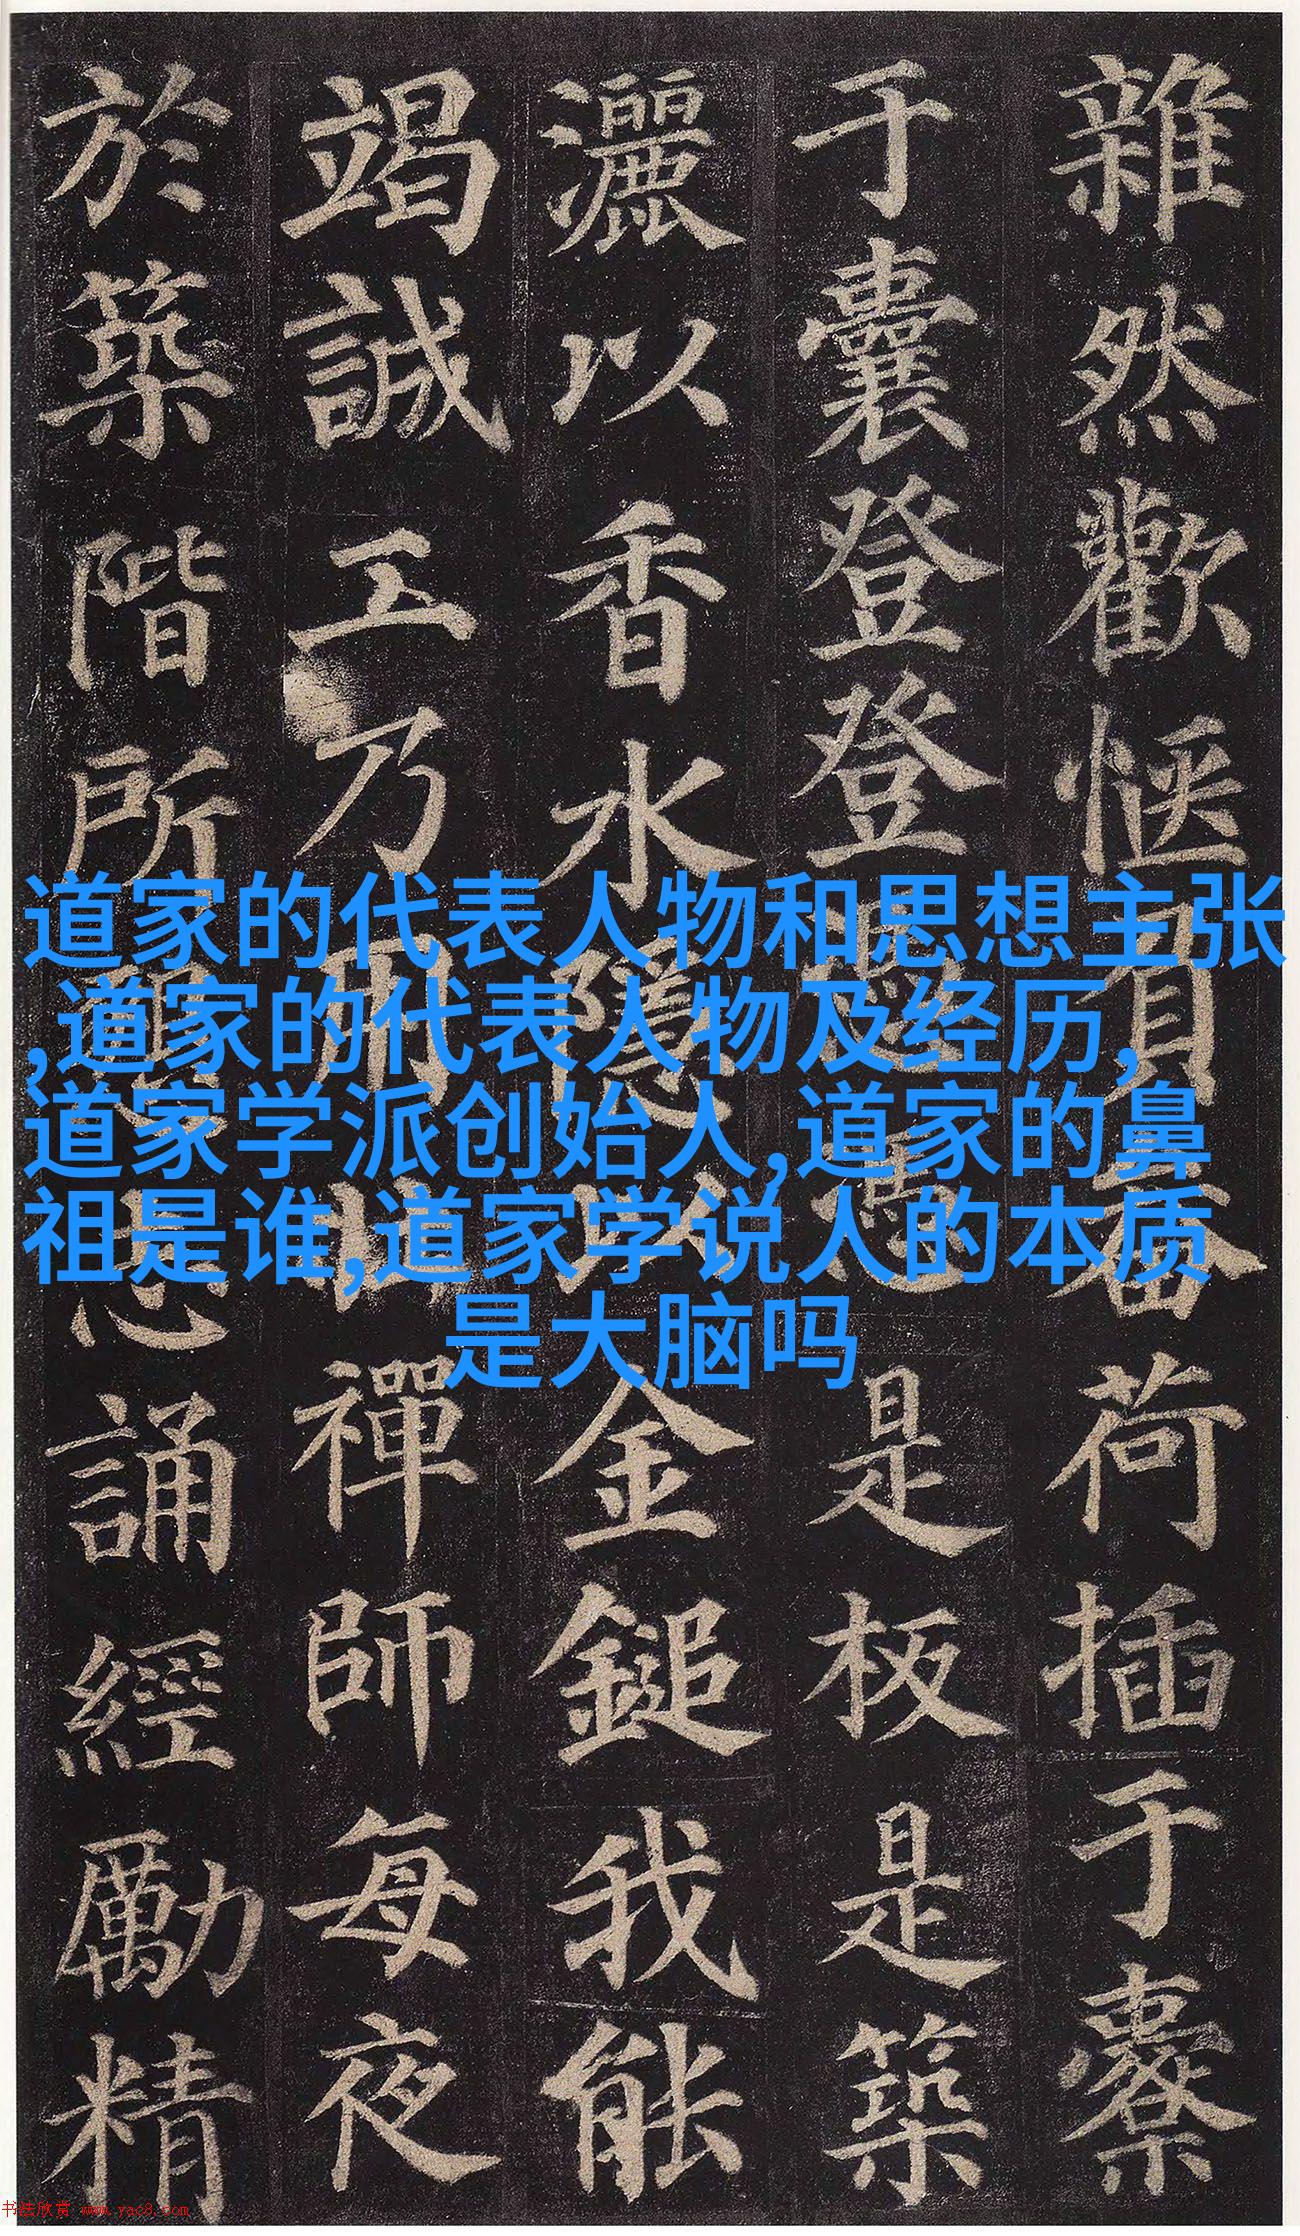 雜然歡愜負畚荷插于橐
于囊登登憑憑是板是築
灑以香水隱以金鎚我能
竭誠工乃用壯禪師每夜
於築階所懇志誦經勵精
道家的代表人物和思想主张
,道家的代表人物及经历,
道家学派创始人,道家的鼻
祖是谁,道家学说人的本质
是大脑吗
书法欣赏 www.yac8.com